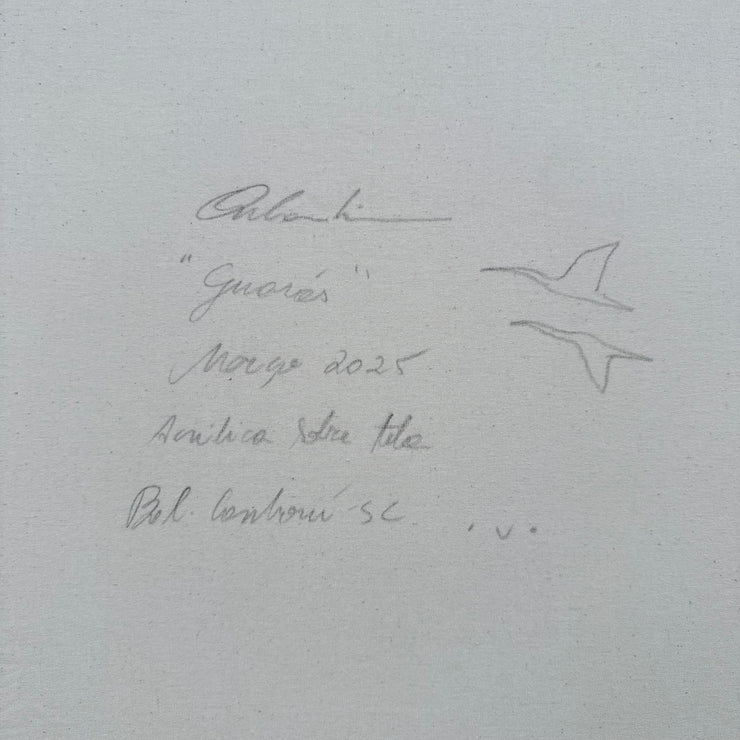 "Guarás"
Março 2025
Acrílica sobre tela
Bal. Camboriú SC